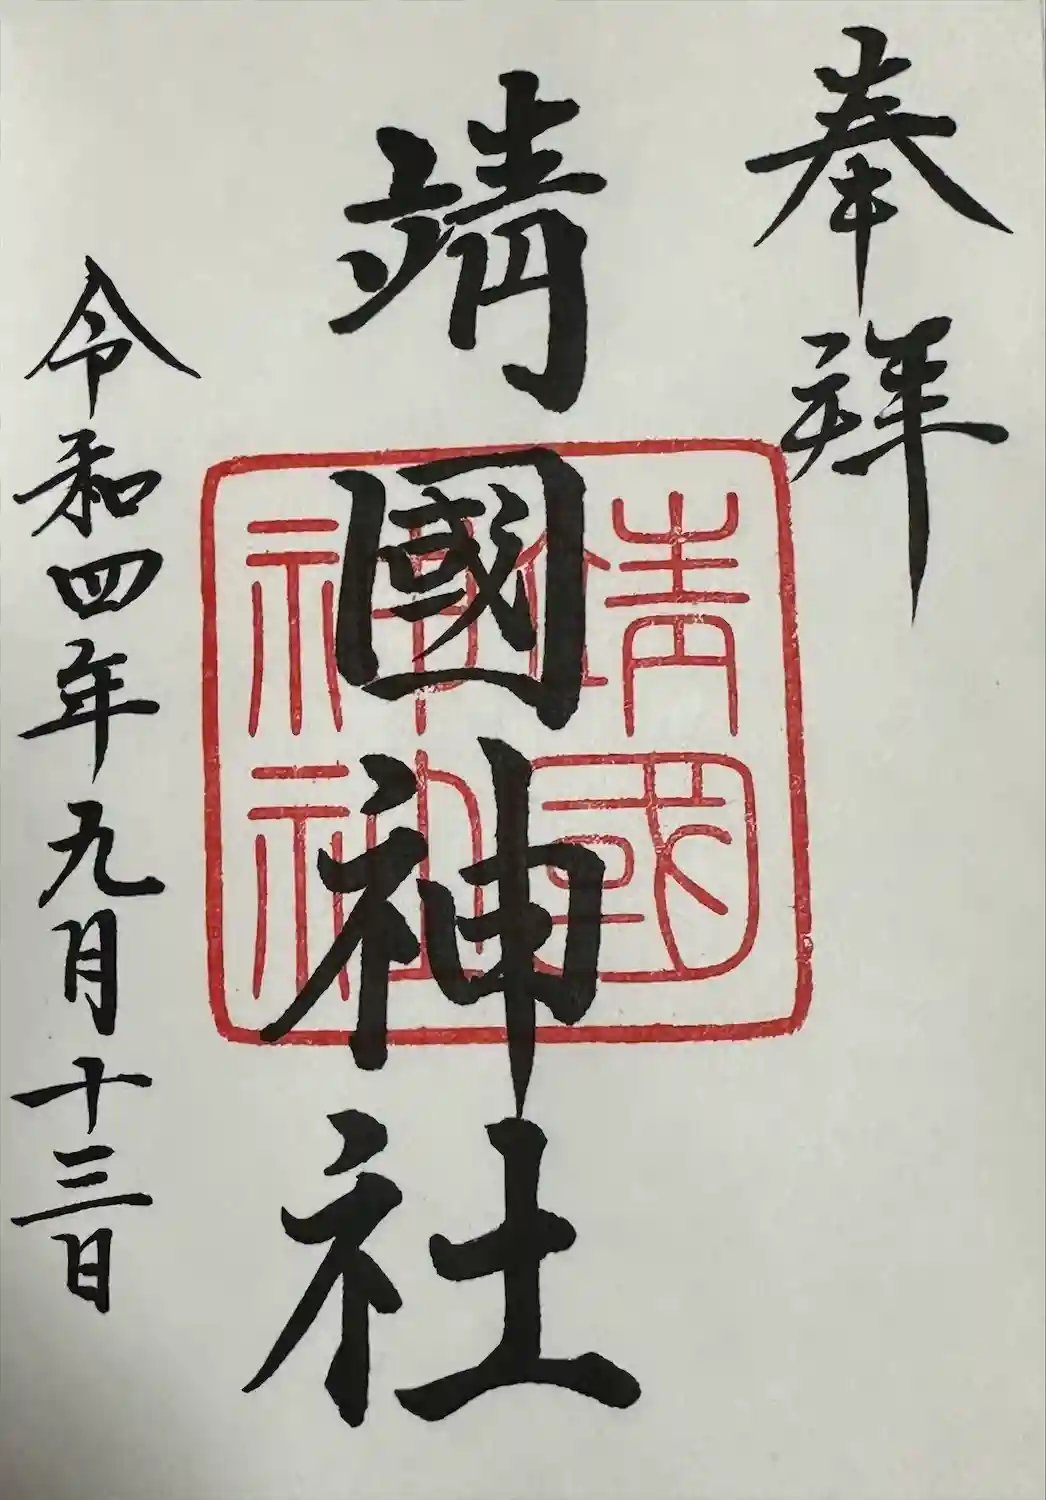 奉拝
靖國神社
靖國
神社
令和四年九月十三日